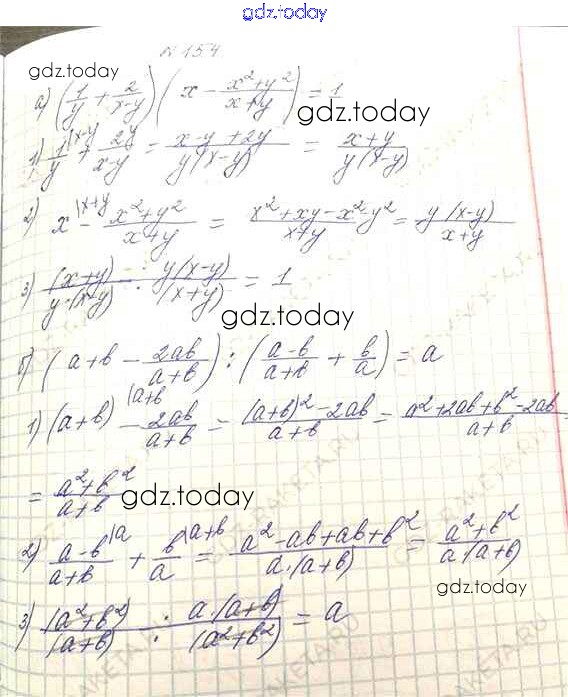 gdz.today
№154
gdz.today
а) (1/y + 2/(x-y)) (x - (x²+y²)/(x+y)) = 1
gdz.today
1) 1/y |x-y + 2y/(x-y) = (x-y+2y)/(y(x-y)) = (x+y)/(y(x-y))
2) x |x+y - (x²+y²)/(x+y) = (x²+xy-x²-y²)/(x+y) = y(x-y)/(x+y)
3) (x+y)/(y·(x-y)) : y(x-y)/(x+y) = 1
gdz.today
б) (a+b - 2ab/(a+b)) : ((a-b)/(a+b) + b/a) = a
1) (a+b) |a+b - 2ab/(a+b) = ((a+b)²-2ab)/(a+b) = (a²+2ab+b²-2ab)/(a+b) =
= (a²+b²)/(a+b)
gdz.today
2) (a-b)/(a+b) |a + b/a |a+b = (a²-ab+ab+b²)/(a·(a+b)) = (a²+b²)/(a·(a+b))
gdz.today
3) (a²+b²)/(a+b) : a·(a+b)/(a²+b²) = a